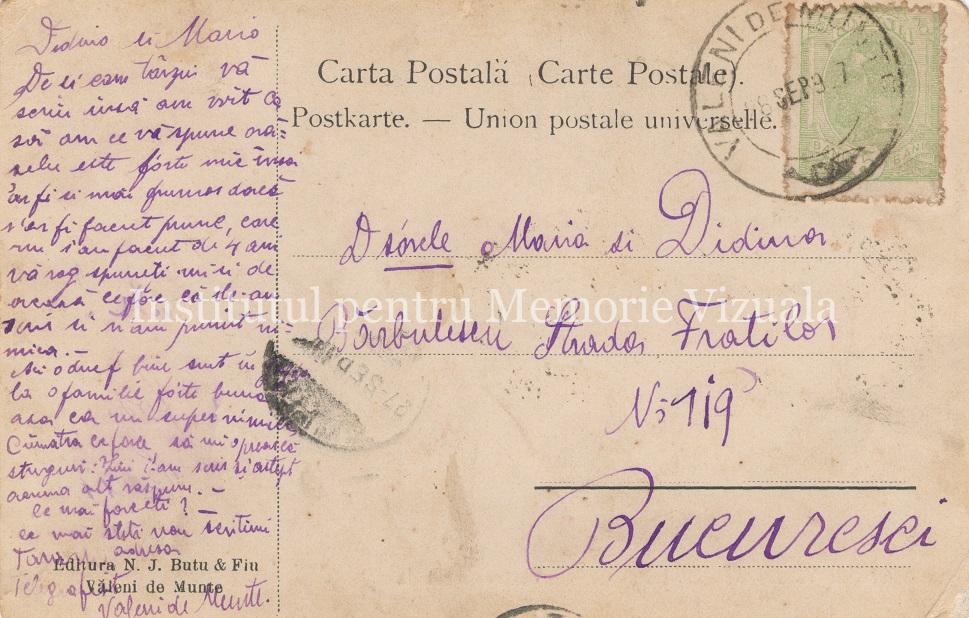 Didino si Mario
De si cam târziu vă
scriu insă am vrit ca
să am ce vă spune ora-
selu este forte mic insa
ar fi si mai frumos dacă
s'ar fi facut prune, care
nu s'au facut de 4 ani
vă rog spuneti mi si de
acasă ce face că le-am
scris si n'am primit ni-
mica.
bine sunt in
la o familie forte buna
asa ca nu supăr nimica
Cumatra ce face, să mi oprească
struguri: i-am scris si astept
acuma alt răspuns. —
Ce mai faceti? —
ce mai stiti nou Scritimi
adresa
Telegrafist
Valeni de Munte.
Carta Postală (Carte Postale)
Postkarte. — Union postale universelle.
VALENI DE MUNTE
SEP 9 7
Dsórele Maria si Didina
Bărbulescu Strada Fratilor
No 119
Bucuresci
27 SEP
Institutul pentru Memorie Vizuala
Editura N. J. Butu & Fiu
Văleni de Munte